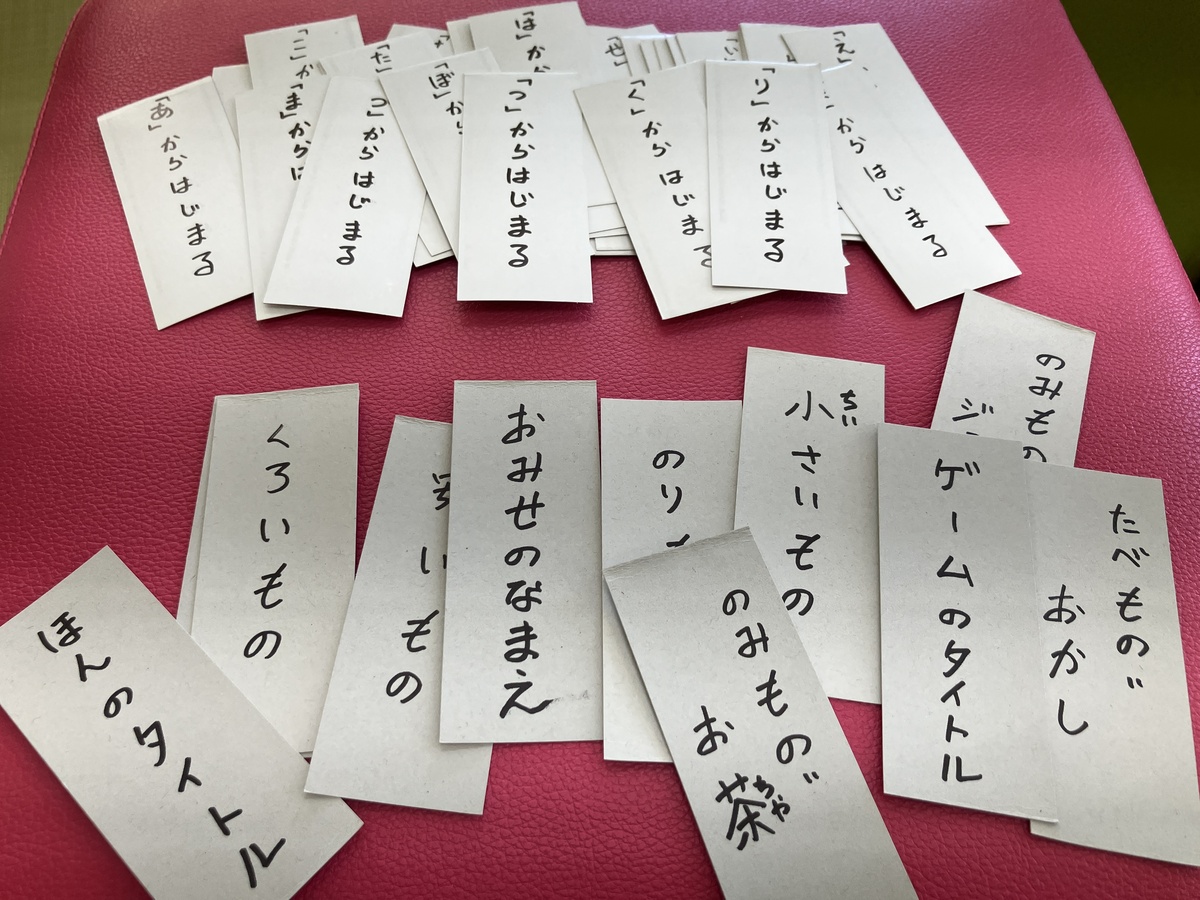 「あ」からはじまる
「こ」か
「ま」からは
「た」
つ」からはじまる
「ぼ」から
「は」か
「つ」からはじまる
「せ」
「く」からはじまる
「い」
「り」からはじまる
からはじまる
「え」
ほんのタイトル
くろいもの
いもの
おみせのなまえ
のり
小さいもの
ちい
のみもの
お茶
ちゃ
ゲームのタイトル
のみもの
ジ
たべもの
おかし